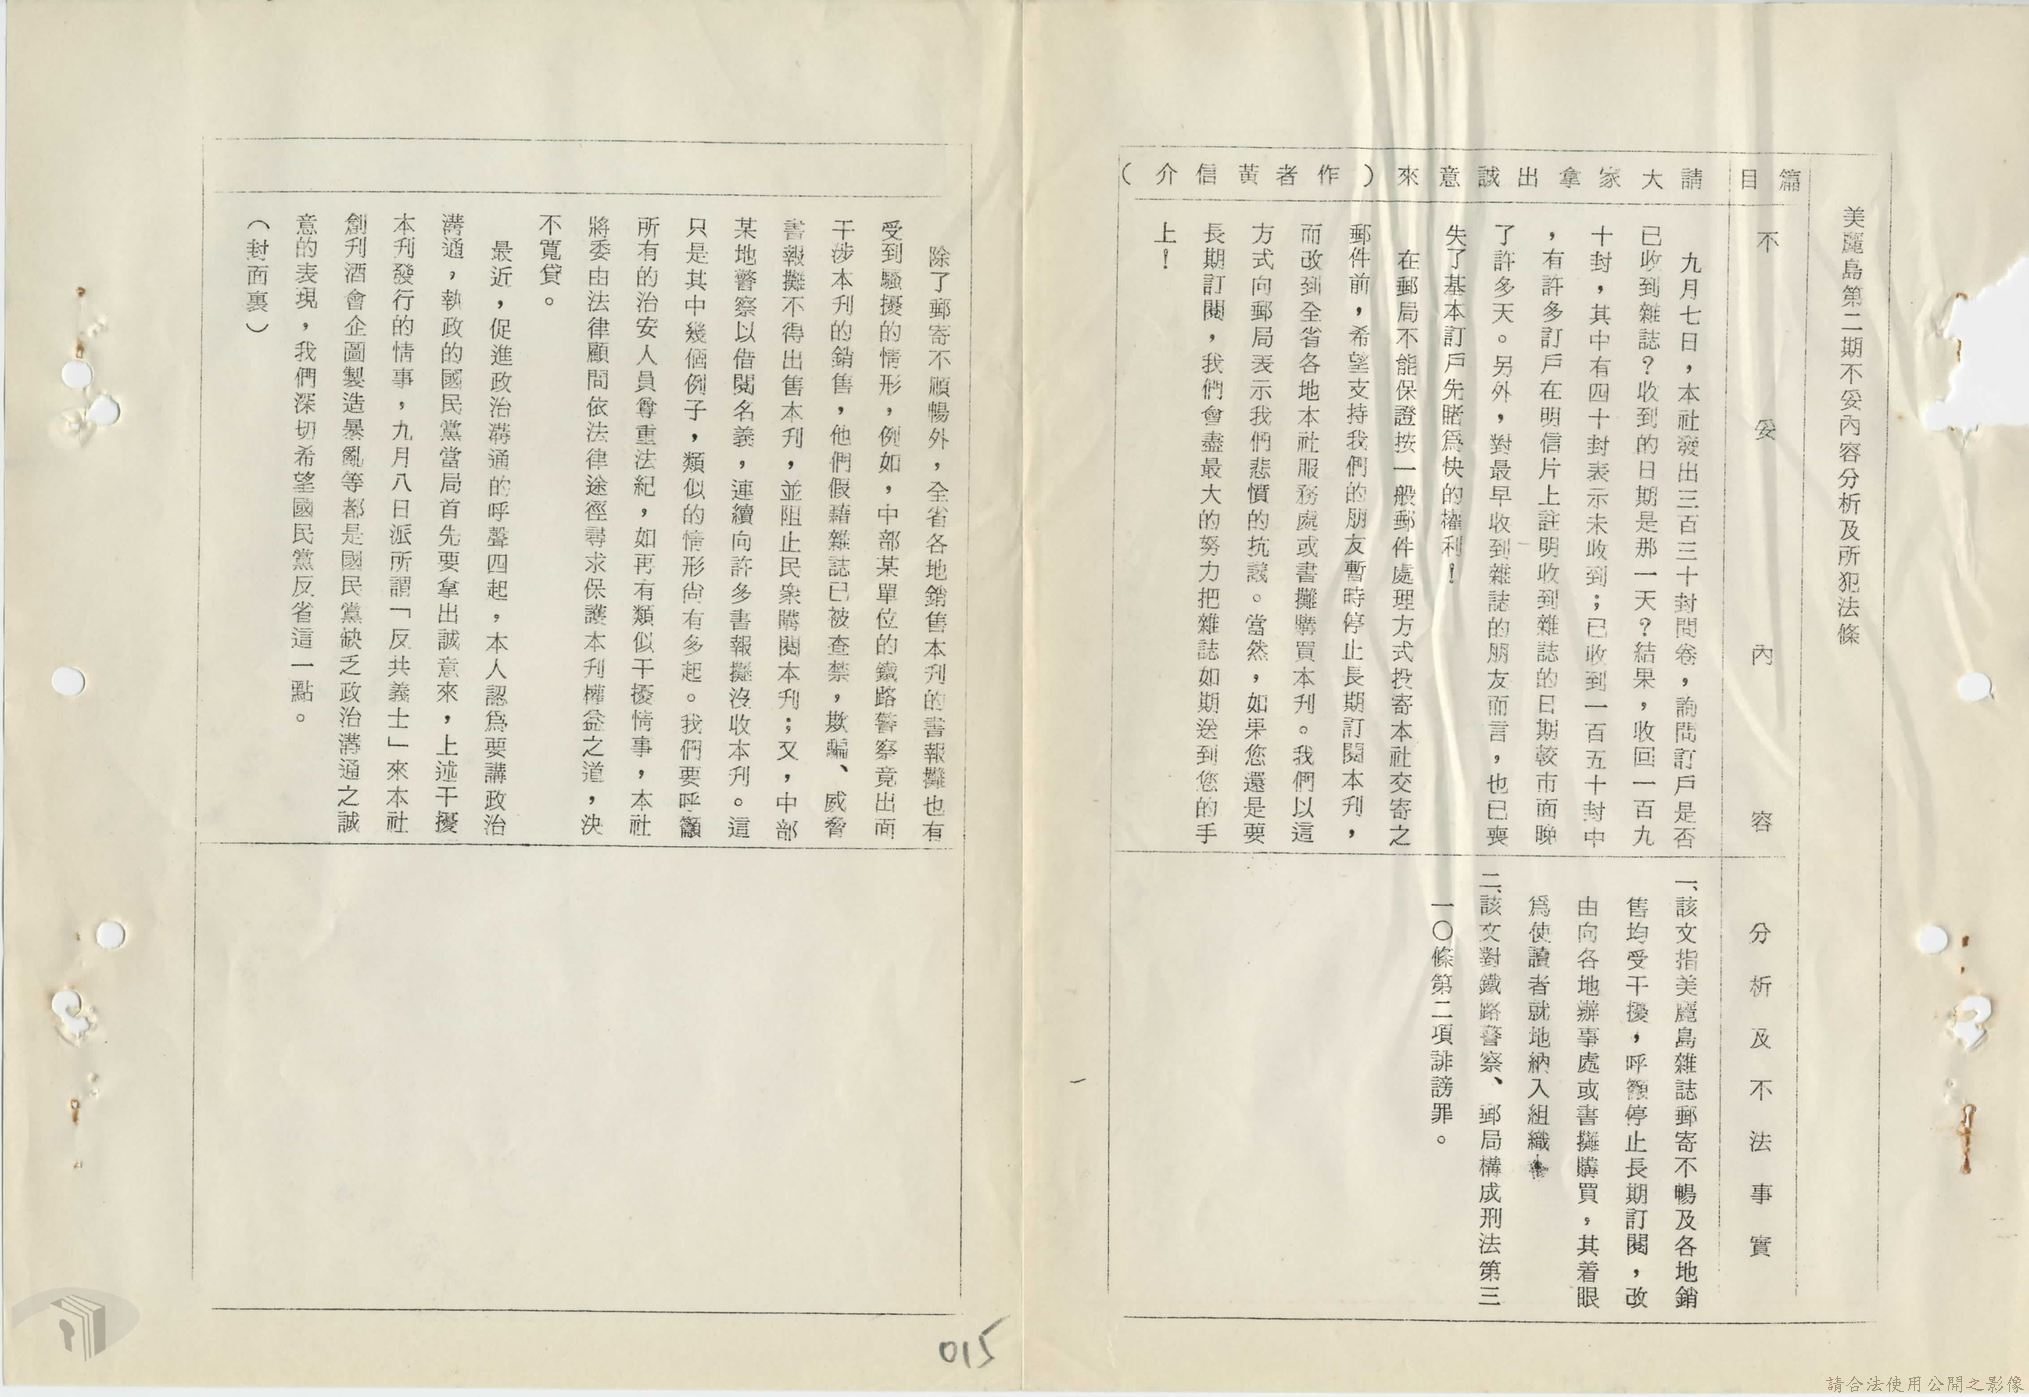 美麗島第二期不妥內容分析及所犯法條
篇目
不妥內容
分析及不法事實
請大家拿出誠意來（作者黃信介）
九月七日，本社發出三百三十封問卷，詢問訂戶是否
已收到雜誌？收到的日期是那一天？結果，收回一百九
十封，其中有四十封表示未收到；已收到一百五十封中
，有許多訂戶在明信片上註明收到雜誌的日期較市面晚
了許多天。另外，對最早收到雜誌的朋友而言，也已喪
失了基本訂戶先睹爲快的權利！
在郵局不能保證按一般郵件處理方式投寄本社交寄之
郵件前，希望支持我們的朋友暫時停止長期訂閱本刋，
而改到全省各地本社服務處或書攤購買本刋。我們以這
方式向郵局表示我們悲憤的抗議。當然，如果您還是要
長期訂閱，我們會盡最大的努力把雜誌如期送到您的手
上！
一、該文指美麗島雜誌郵寄不暢及各地銷
售均受干擾，呼籲停止長期訂閱，改
由向各地辦事處或書攤購買，其着眼
爲使讀者就地納入組織。
二、該文對鐵路警察、郵局構成刑法第三
一〇條第二項誹謗罪。
除了郵寄不順暢外，全省各地銷售本刋的書報攤也有
受到騷擾的情形，例如，中部某單位的鐵路警察竟出面
干涉本刋的銷售，他們假藉雜誌已被查禁，欺騙、威脅
書報攤不得出售本刋，並阻止民衆購閱本刋；又，中部
某地警察以借閱名義，連續向許多書報攤沒收本刋。這
只是其中幾個例子，類似的情形尙有多起。我們要呼籲
所有的治安人員尊重法紀，如再有類似干擾情事，本社
將委由法律顧問依法律途徑尋求保護本刋權益之道，決
不寬貸。
最近，促進政治溝通的呼聲四起，本人認爲要講政治
溝通，執政的國民黨當局首先要拿出誠意來，上述干擾
本刋發行的情事，九月八日派所謂「反共義士」來本社
創刋酒會企圖製造暴亂等都是國民黨缺乏政治溝通之誠
意的表現，我們深切希望國民黨反省這一點。
（封面裏）
015
請合法使用公開之影像